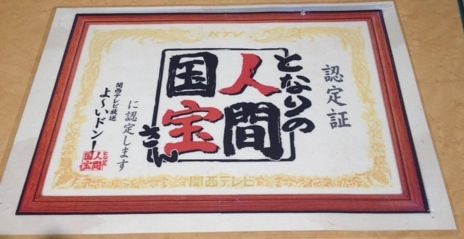 KTV
認定証
となりの
人間
国宝
さん
に認定します
関西テレビ放送
よ〜いドン!
となりの
人間
国宝
さん
関西テレビ